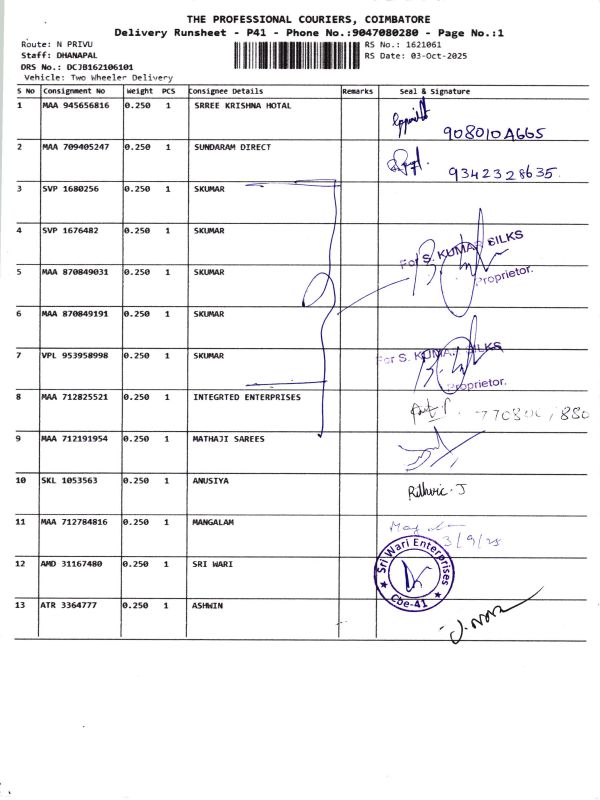 THE PROFESSIONAL COURIERS, COIMBATORE
Delivery Runsheet - P41 - Phone No.:9047080280 - Page No.:1
Route: N PRIVU
RS No.: 1621061
Staff: DHANAPAL
RS Date: 03-Oct-2025
DRS No.: DCJB162106101
Vehicle: Two Wheeler Delivery
S No Consignment No Weight PCS Consignee Details Remarks Seal & Signature
1 MAA 945656816 0.250 1 SRREE KRISHNA HOTAL
2 MAA 709405247 0.250 1 SUNDARAM DIRECT
9342328635
3 SVP 1680256 0.250 1 SKUMAR
4 SVP 1676482 0.250 1 SKUMAR
For S. KUMAR SILKS
Proprietor.
5 MAA 870849031 0.250 1 SKUMAR
6 MAA 870849191 0.250 1 SKUMAR
7 VPL 953958998 0.250 1 SKUMAR
For S. KUMAR SILKS
Proprietor.
8 MAA 712825521 0.250 1 INTEGRTED ENTERPRISES
9 MAA 712191954 0.250 1 MATHAJI SAREES
10 SKL 1053563 0.250 1 ANUSIYA
11 MAA 712784816 0.250 1 MANGALAM
3/9/25
12 AMD 31167480 0.250 1 SRI WARI
Sri Wari Enterprises
Cbe-41
13 ATR 3364777 0.250 1 ASHWIN